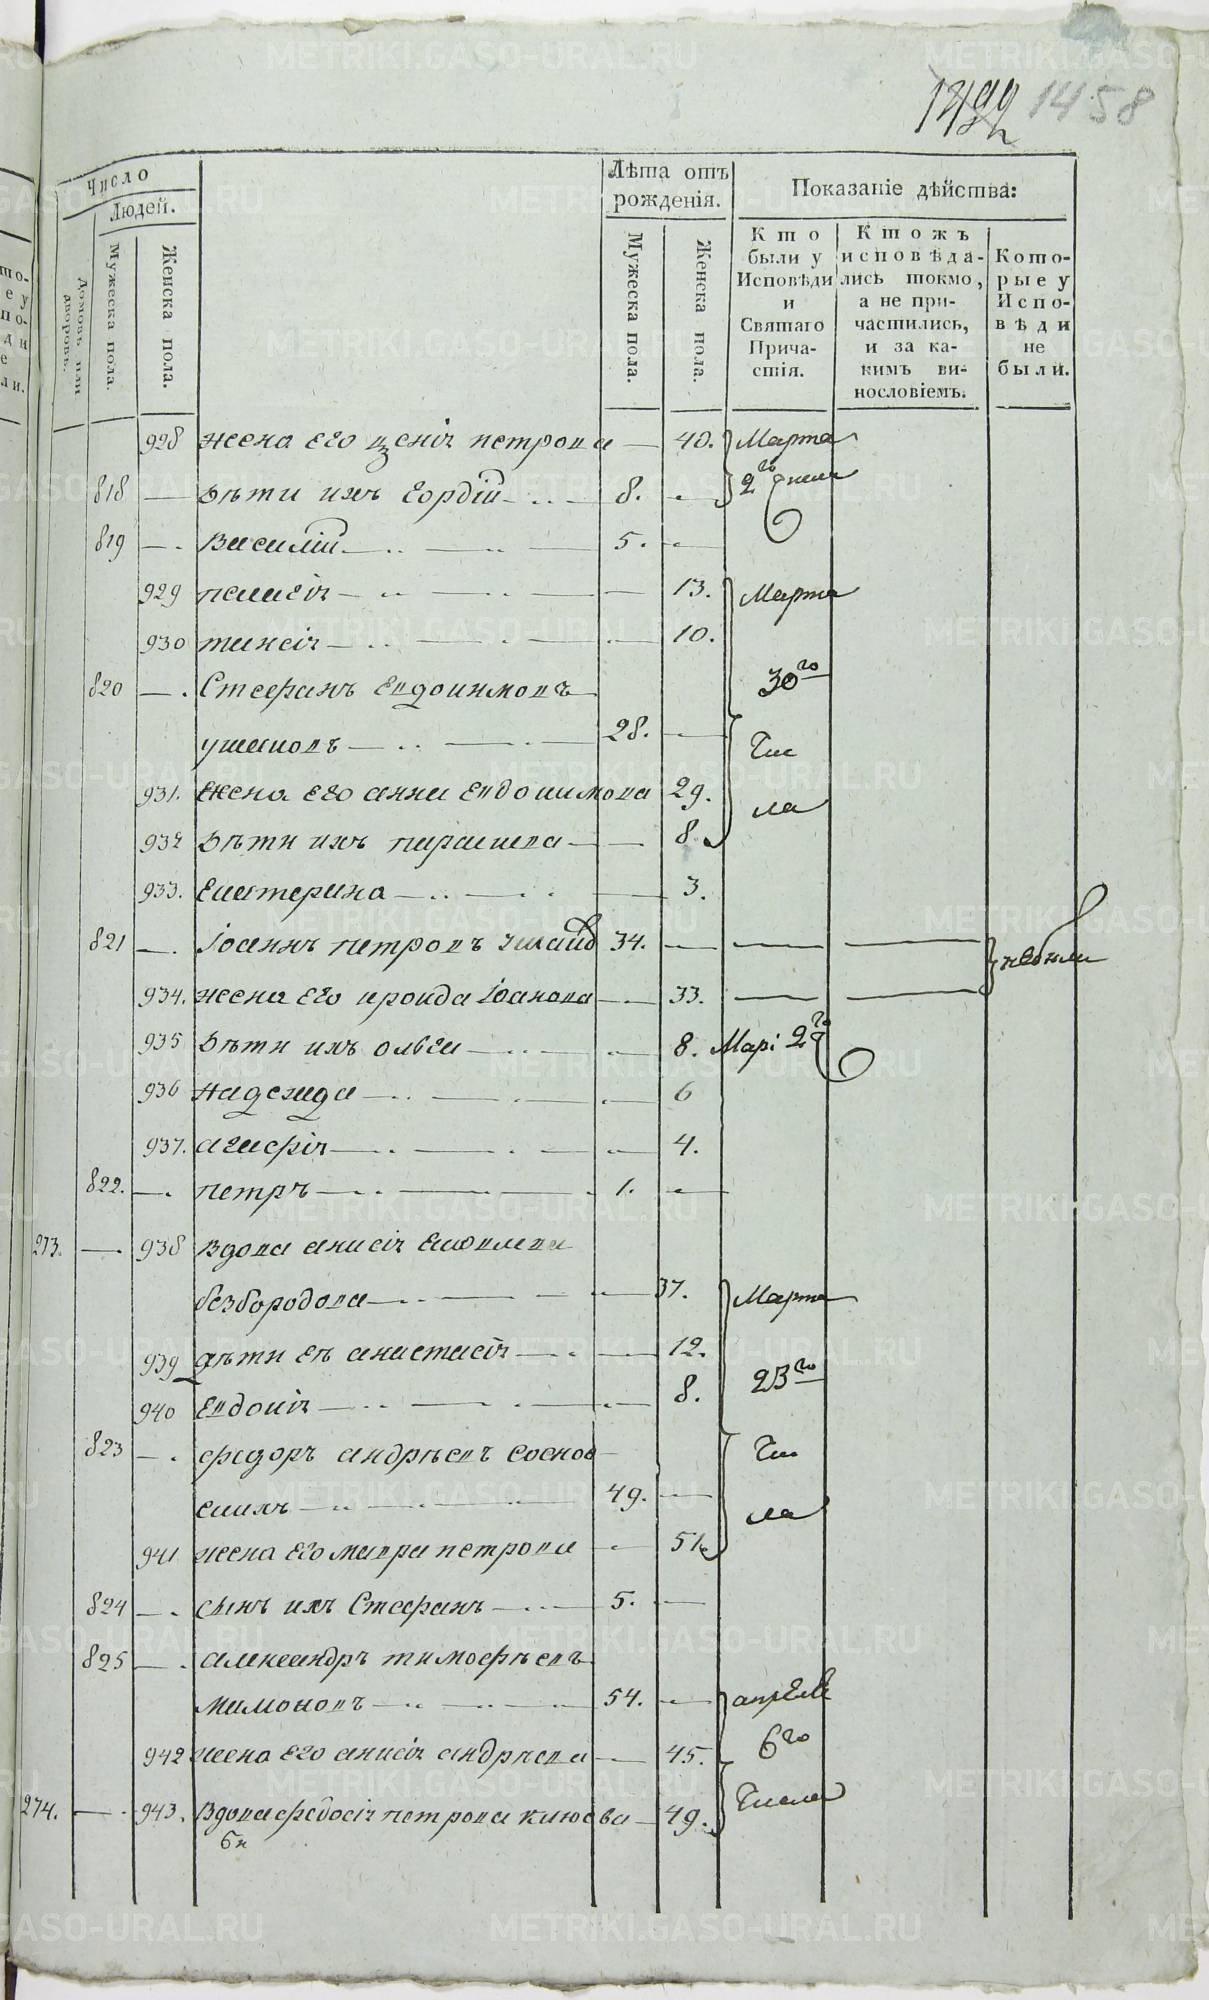 1458
Число
Людей.
Домовъ или дворовъ.
Мужеска пола.
Женска пола.
Лѣта отъ рожденія.
Мужеска пола.
Женска пола.
Показаніе дѣйства:
Кто были у Исповѣди и Святаго Причастія.
Ктожъ исповѣдались токмо, а не причастились, и за какимъ винословіемъ.
Которые у Исповѣди не были.
928 жена его петрова — 40. Марта
818 — дѣти ихъ Гордій — 8. — 2го числа
819 — Василій — 5. —
929 пелагія — 13. Марта
930 таисія — 10.
820 — Стефанъ Евдокимовъ 30го
ушаковъ — 28. — Чис
931. жена его анна Евдокимова 29. ла
932 дѣти ихъ парасковa — 8.
933. Екатерина — 3.
821 — Іоаннъ петровъ 34. — — — не были
934. жена его Іоанова — 33. — —
935 дѣти ихъ ольга — 8. Мар: 29го
936 надежда — 6
937. агафія — 4.
822. — петръ — 1. —
273. — 938 Вдова анисія
безбородова — 37. Марта
939 дѣти ея анастасія — 12. 23го
940 Евдокія — 8.
823 — федоръ андрѣевъ соснов Чис
скихъ — 49. — ла
941 жена его мавра петрова — 51.
824 — сынъ ихъ Стефанъ — 5. —
825 — александръ тимофѣевъ
мамоновъ — 54. — апрѣля
942 жена его анисія андрѣева — 45. 6го
274. — 943. Вдова федосія петрова клюева — 49. Числа